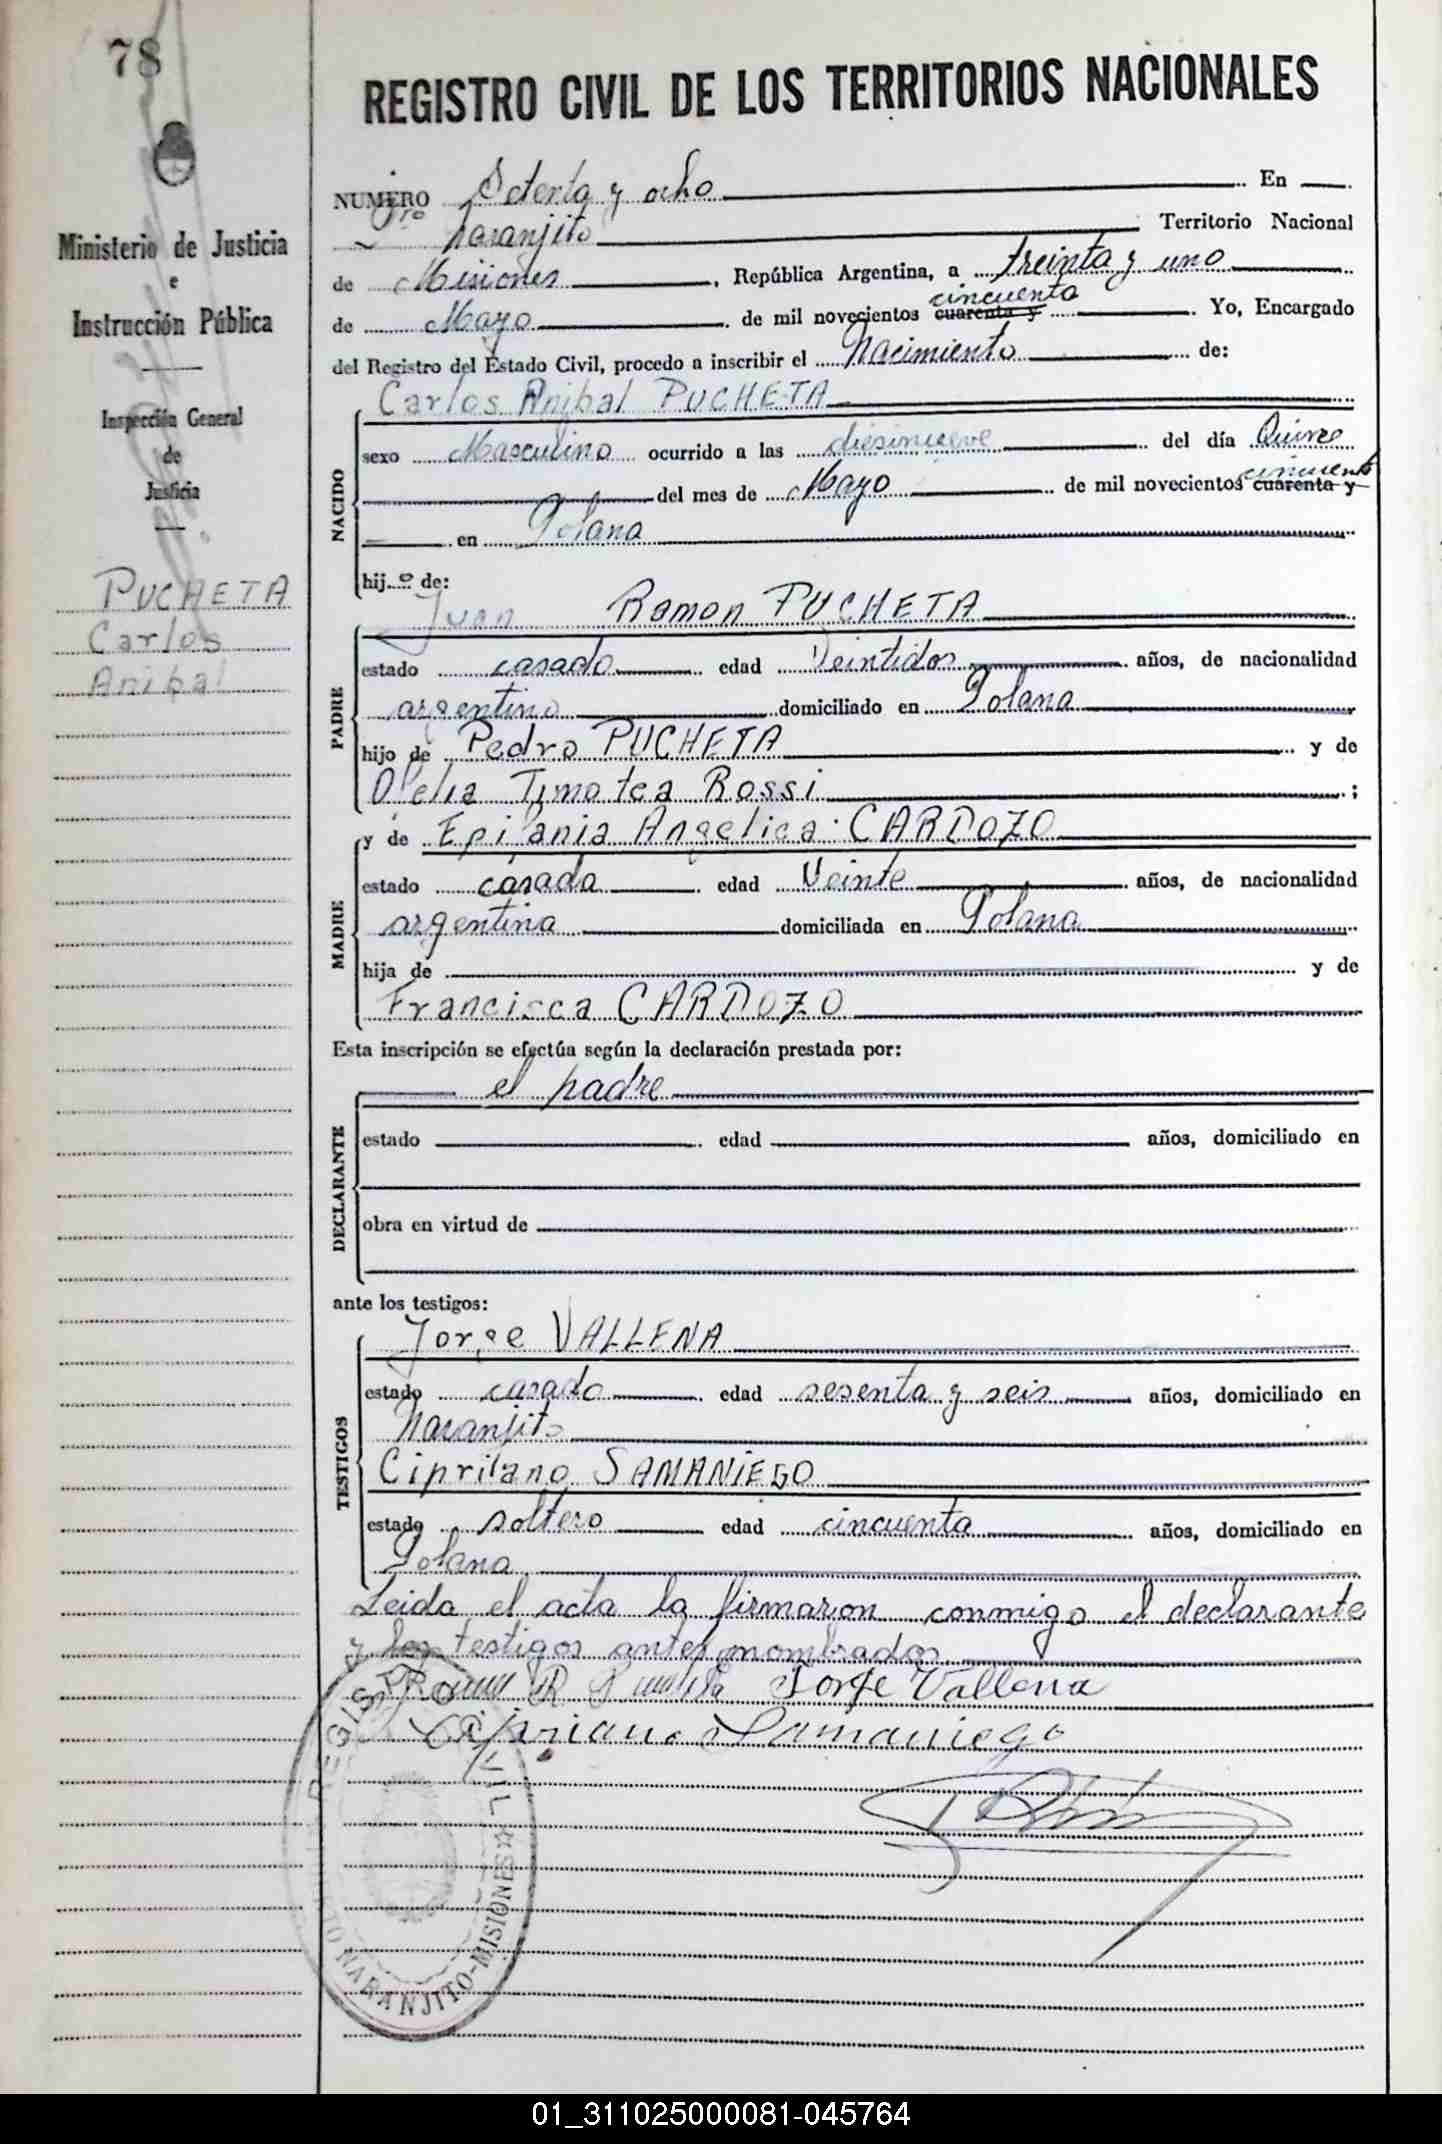 78
REGISTRO CIVIL DE LOS TERRITORIOS NACIONALES
Ministerio de Justicia
e
Instrucción Pública
Inspección General
de
Justicia
PUCHETA
Carlos
Anibal
NUMERO Setenta y ocho En
Naranjito Territorio Nacional
de Misiones, República Argentina, a treinta y uno
de Mayo de mil novecientos cuarenta y cincuenta Yo, Encargado
del Registro del Estado Civil, procedo a inscribir el Nacimiento de:
NACIDO
Carlos Anibal PUCHETA
sexo Masculino ocurrido a las diesinueve del día Quince
del mes de Mayo de mil novecientos cuarenta y cincuenta
en Polana
hij o de:
PADRE
Juan Ramon PUCHETA
estado casado edad Veintidos años, de nacionalidad
argentino domiciliado en Polana
hijo de Pedro PUCHETA y de
Ofelia Timotea Rossi ;
MADRE
y de Epifania Angelica CARDOZO
estado casada edad Veinte años, de nacionalidad
argentina domiciliada en Polana
hija de y de
Francisca CARDOZO
Esta inscripción se efectúa según la declaración prestada por:
DECLARANTE
el padre
estado edad años, domiciliado en
obra en virtud de
ante los testigos:
TESTIGOS
Jorge VALLENA
estado casado edad sesenta y seis años, domiciliado en
Naranjito
Ciprilano SAMANIEGO
estado soltero edad cincuenta años, domiciliado en
Polana
Leida el acta la firmaron conmigo el declarante
y los testigos antes nombrados
Jorge Vallena
Cipriano Samaniego
REGISTRO CIVIL
NARANJITO-MISIONES
01_311025000081-045764